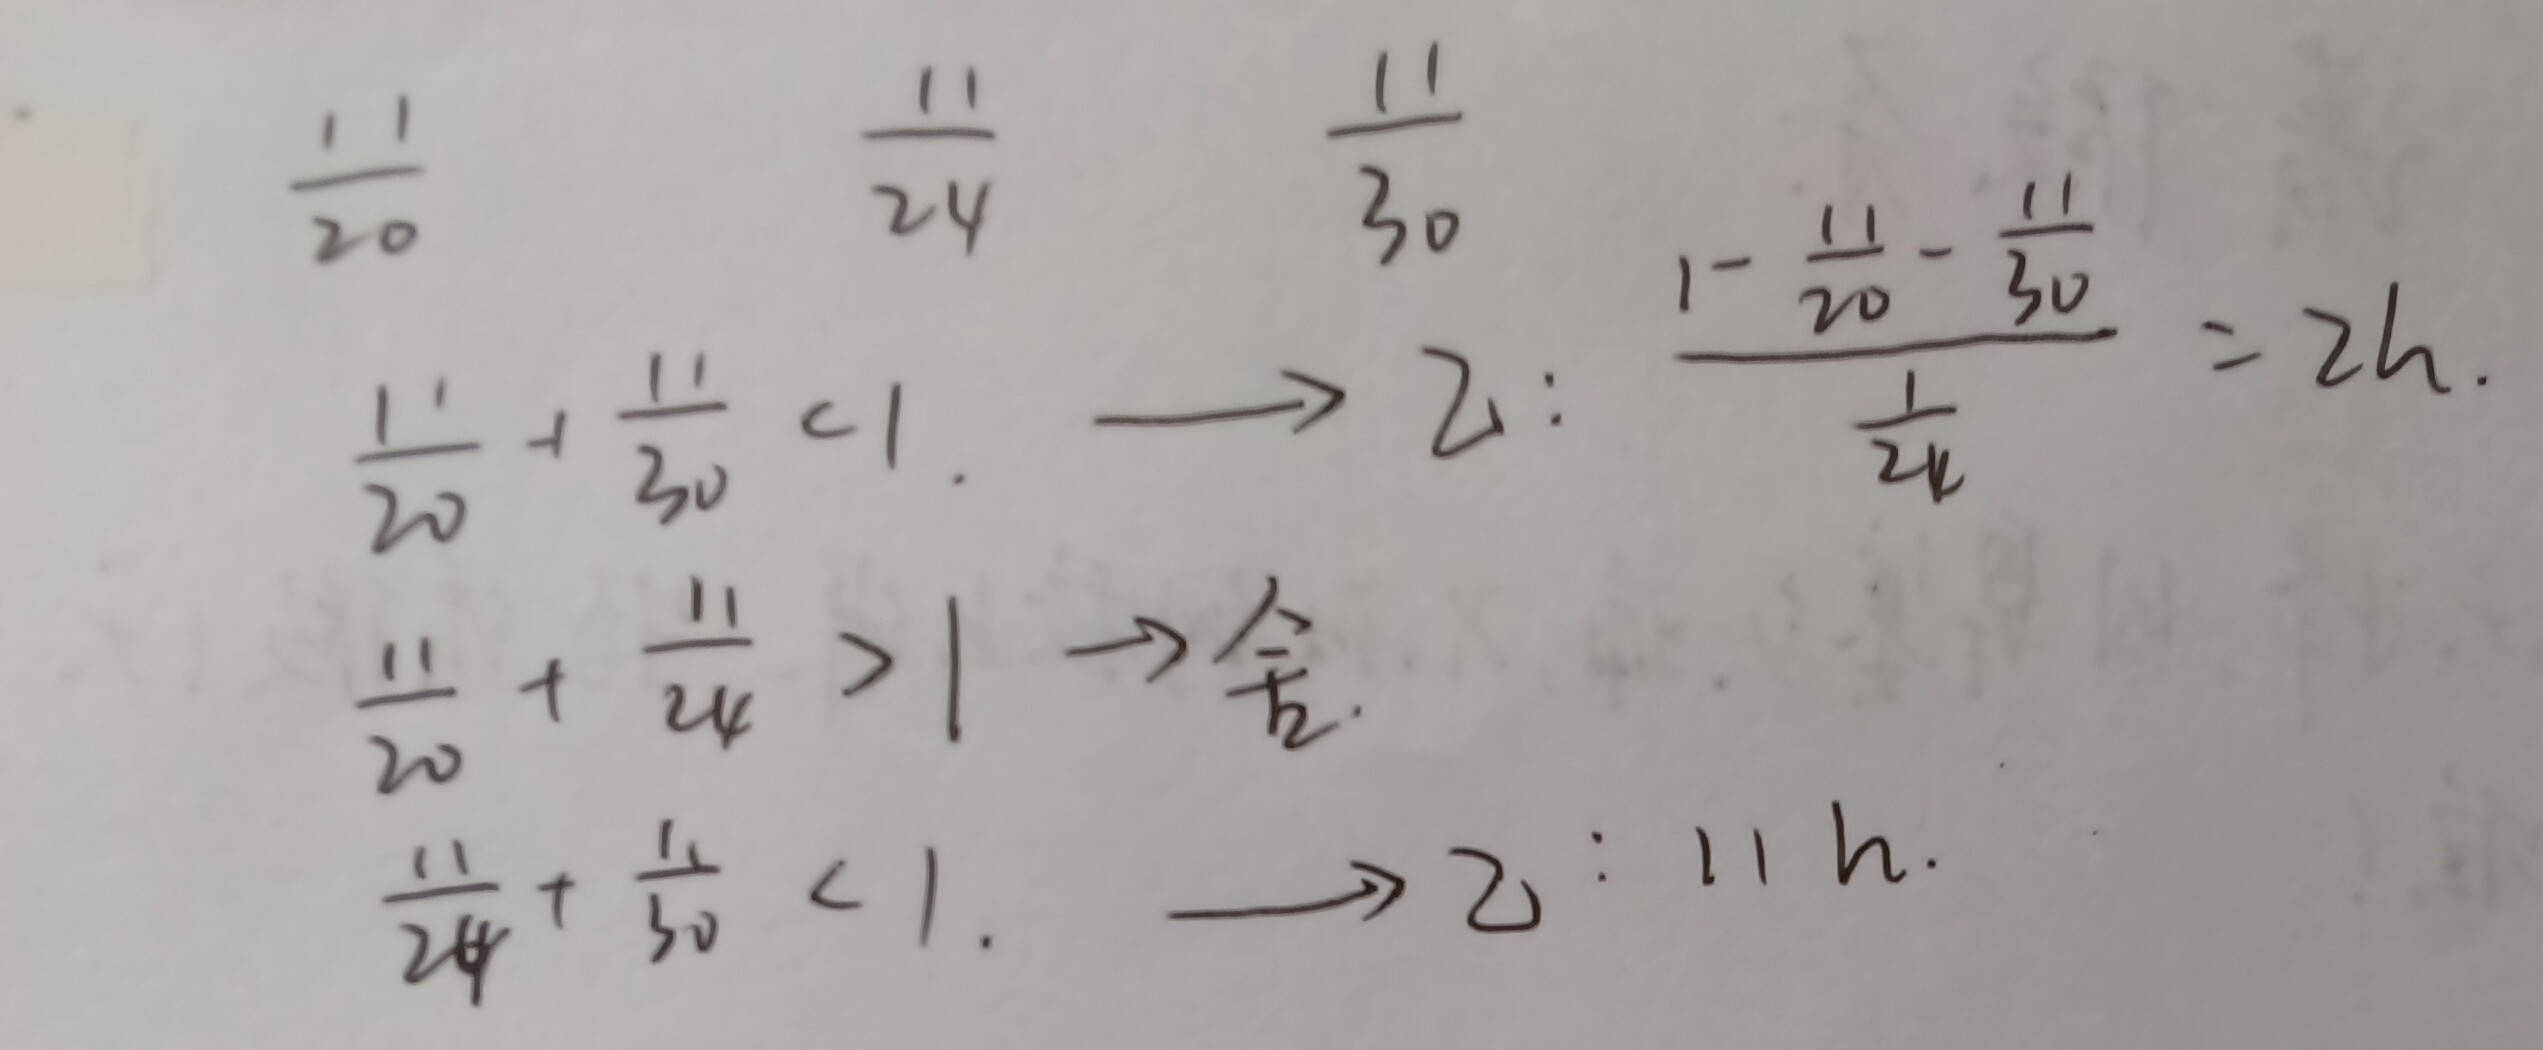 11/20  11/24  11/30
11/20 + 11/30 < 1. → 乙: (1 - 11/20 - 11/30) / (1/24) = 2h.
11/20 + 11/24 > 1 → 舍.
11/24 + 11/30 < 1. → 乙: 11 h.